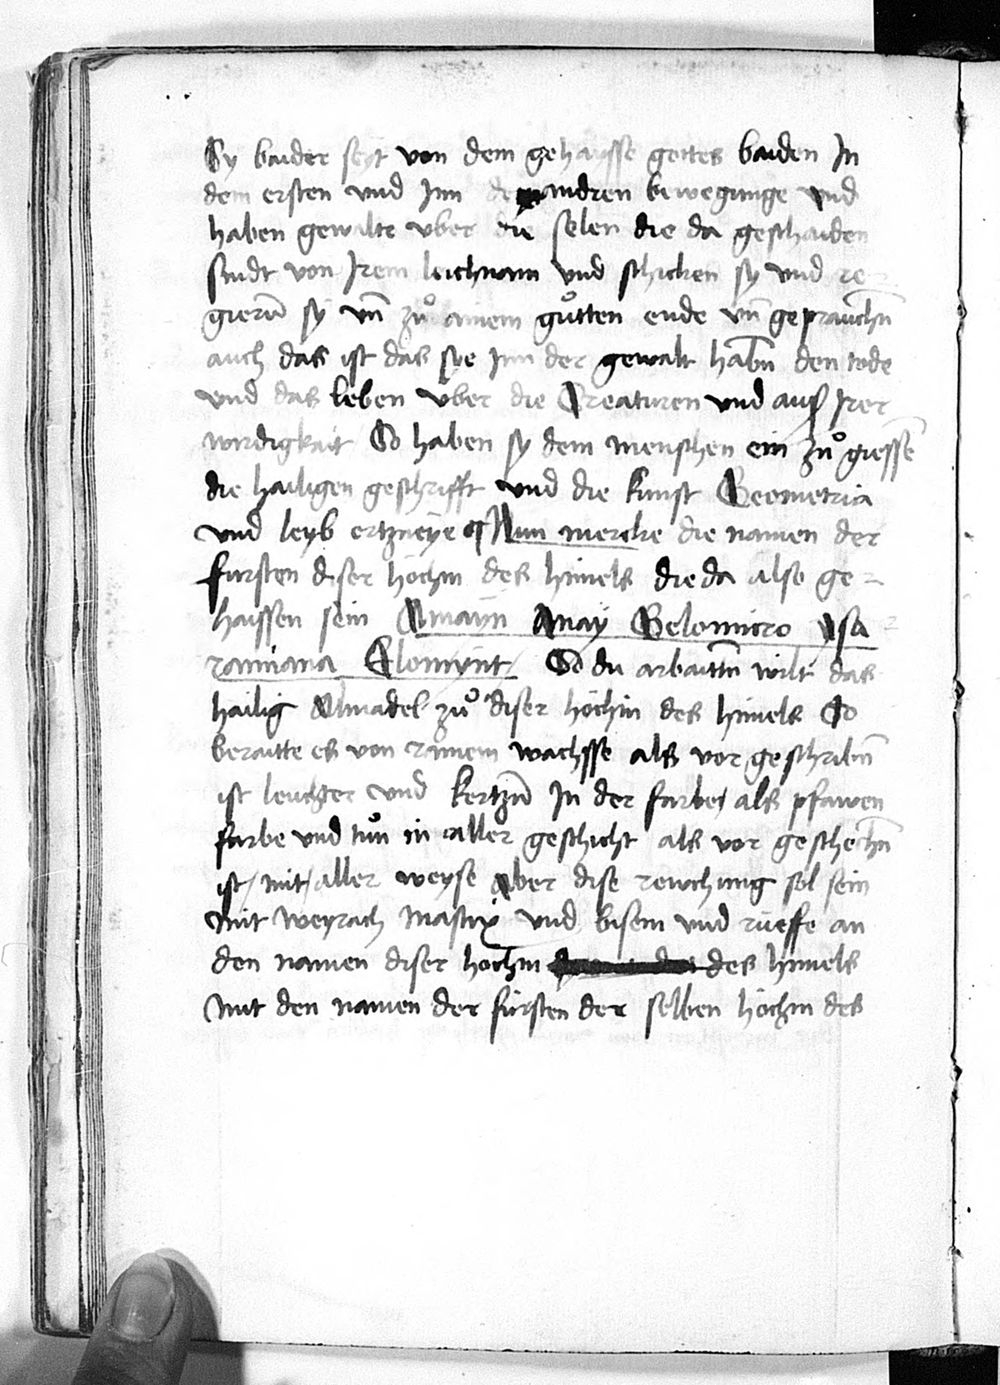 Sy baider seyt von dem gehaysse gottes baiden In
dem ersten vnd Jnn de andren bewegunge vnd
haben gewalte vber die selen die da geschaiden
sindt von Jrem leichnam vnd schicken sy vnd re
gierñ sy vñ zů ainem gůtten ende vñ geprauchñ
auch das ist das sye Jnn der gewalt habñ den tode
vnd das leben vber die Creaturen vnd auß Jrer
wirdigkait So haben sy dem menschen ein zů giessẽ
die hailigen geschrifft vnd die kunst Geometria
vnd leyb ertzneye Nun mercke die namen der
fursten diser höchin des himels die da also ge=
haissen sein Amayn Anay Gelomicro Ysa
ramiana Elomynt So du arbaittñ wilt das
hailig Almadel zů diser höchin des himels So
beraitte es von rainem wachsse als vor geschribñ
ist leuchter vnd kertzñ In der farbe als pfawen
farbe vnd tůn in aller geschicht als vor geschechñ
ist mit aller weyse Aber dise reuchung sol sein
mit weyrach mastix vnd bisem vnd rueffe an
den namen diser höchin des himels
mit den namen der fürsten der selben höchin des